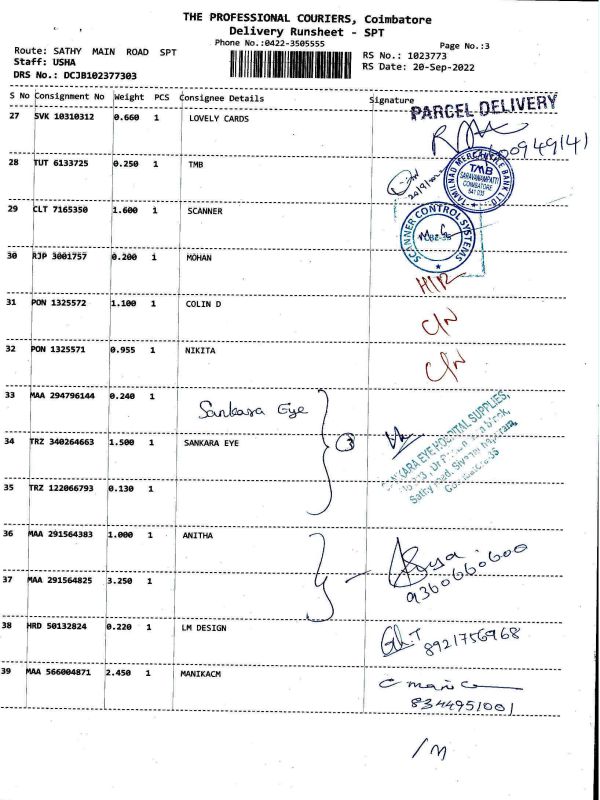 THE PROFESSIONAL COURIERS, Coimbatore
Delivery Runsheet - SPT
Phone No.:0422-3505555
Page No.:3
Route: SATHY MAIN ROAD SPT
RS No.: 1023773
Staff: USHA
RS Date: 20-Sep-2022
DRS No.: DCJB102377303
S No Consignment No Weight PCS Consignee Details Signature
PARCEL DELIVERY
27 SVK 10310312 0.660 1 LOVELY CARDS
28 TUT 6133725 0.250 1 TMB
20/9/22
TAMILNAD MERCANTILE BANK LTD
TMB
SARAVANAMPATTI
COIMBATORE
641 035
29 CLT 7165350 1.600 1 SCANNER
SCANNER CONTROL SYSTEMS
CBE-35
30 RJP 3001757 0.200 1 MOHAN
31 PON 1325572 1.100 1 COLIN D
C/N
32 PON 1325571 0.955 1 NIKITA
C/N
33 MAA 294796144 0.240 1
Sankara Eye
34 TRZ 340264663 1.500 1 SANKARA EYE
3
SANKARA EYE HOSPITAL SUPPLIES,
Sathy Road,
Coimbatore-35
35 TRZ 122066793 0.130 1
36 MAA 291564383 1.000 1 ANITHA
9360660600
37 MAA 291564825 3.250 1
38 HRD 50132824 0.220 1 LM DESIGN
8921756968
39 MAA 566004871 2.450 1 MANIKACM
8344951001